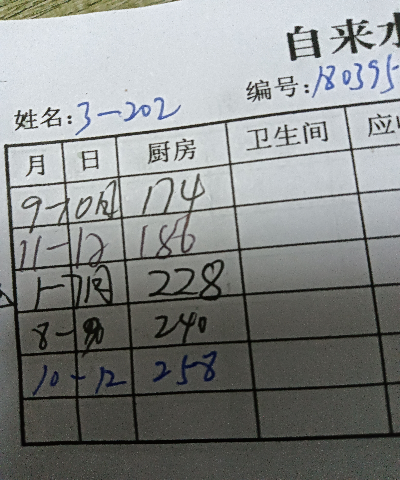 自来水
编号:180395
姓名:3-202
月 日 厨房 卫生间 应
9-10月 174
11-12 186
1-7月 228
8- 240
10-12 258